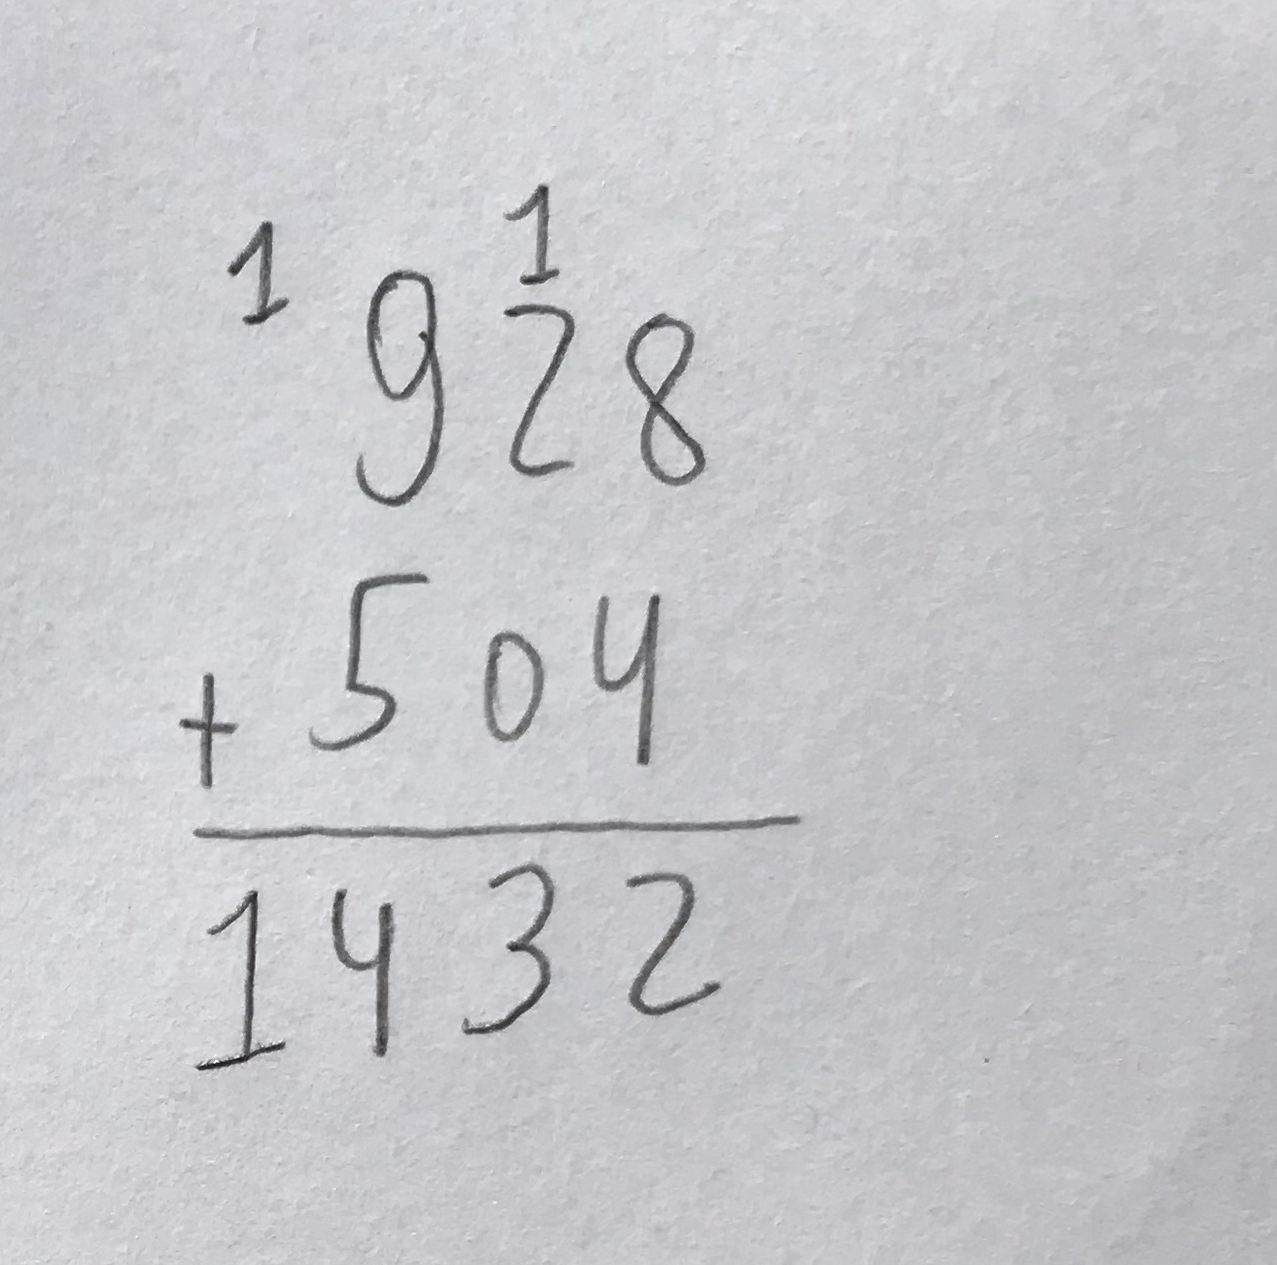 1 1
928
+ 504
1432